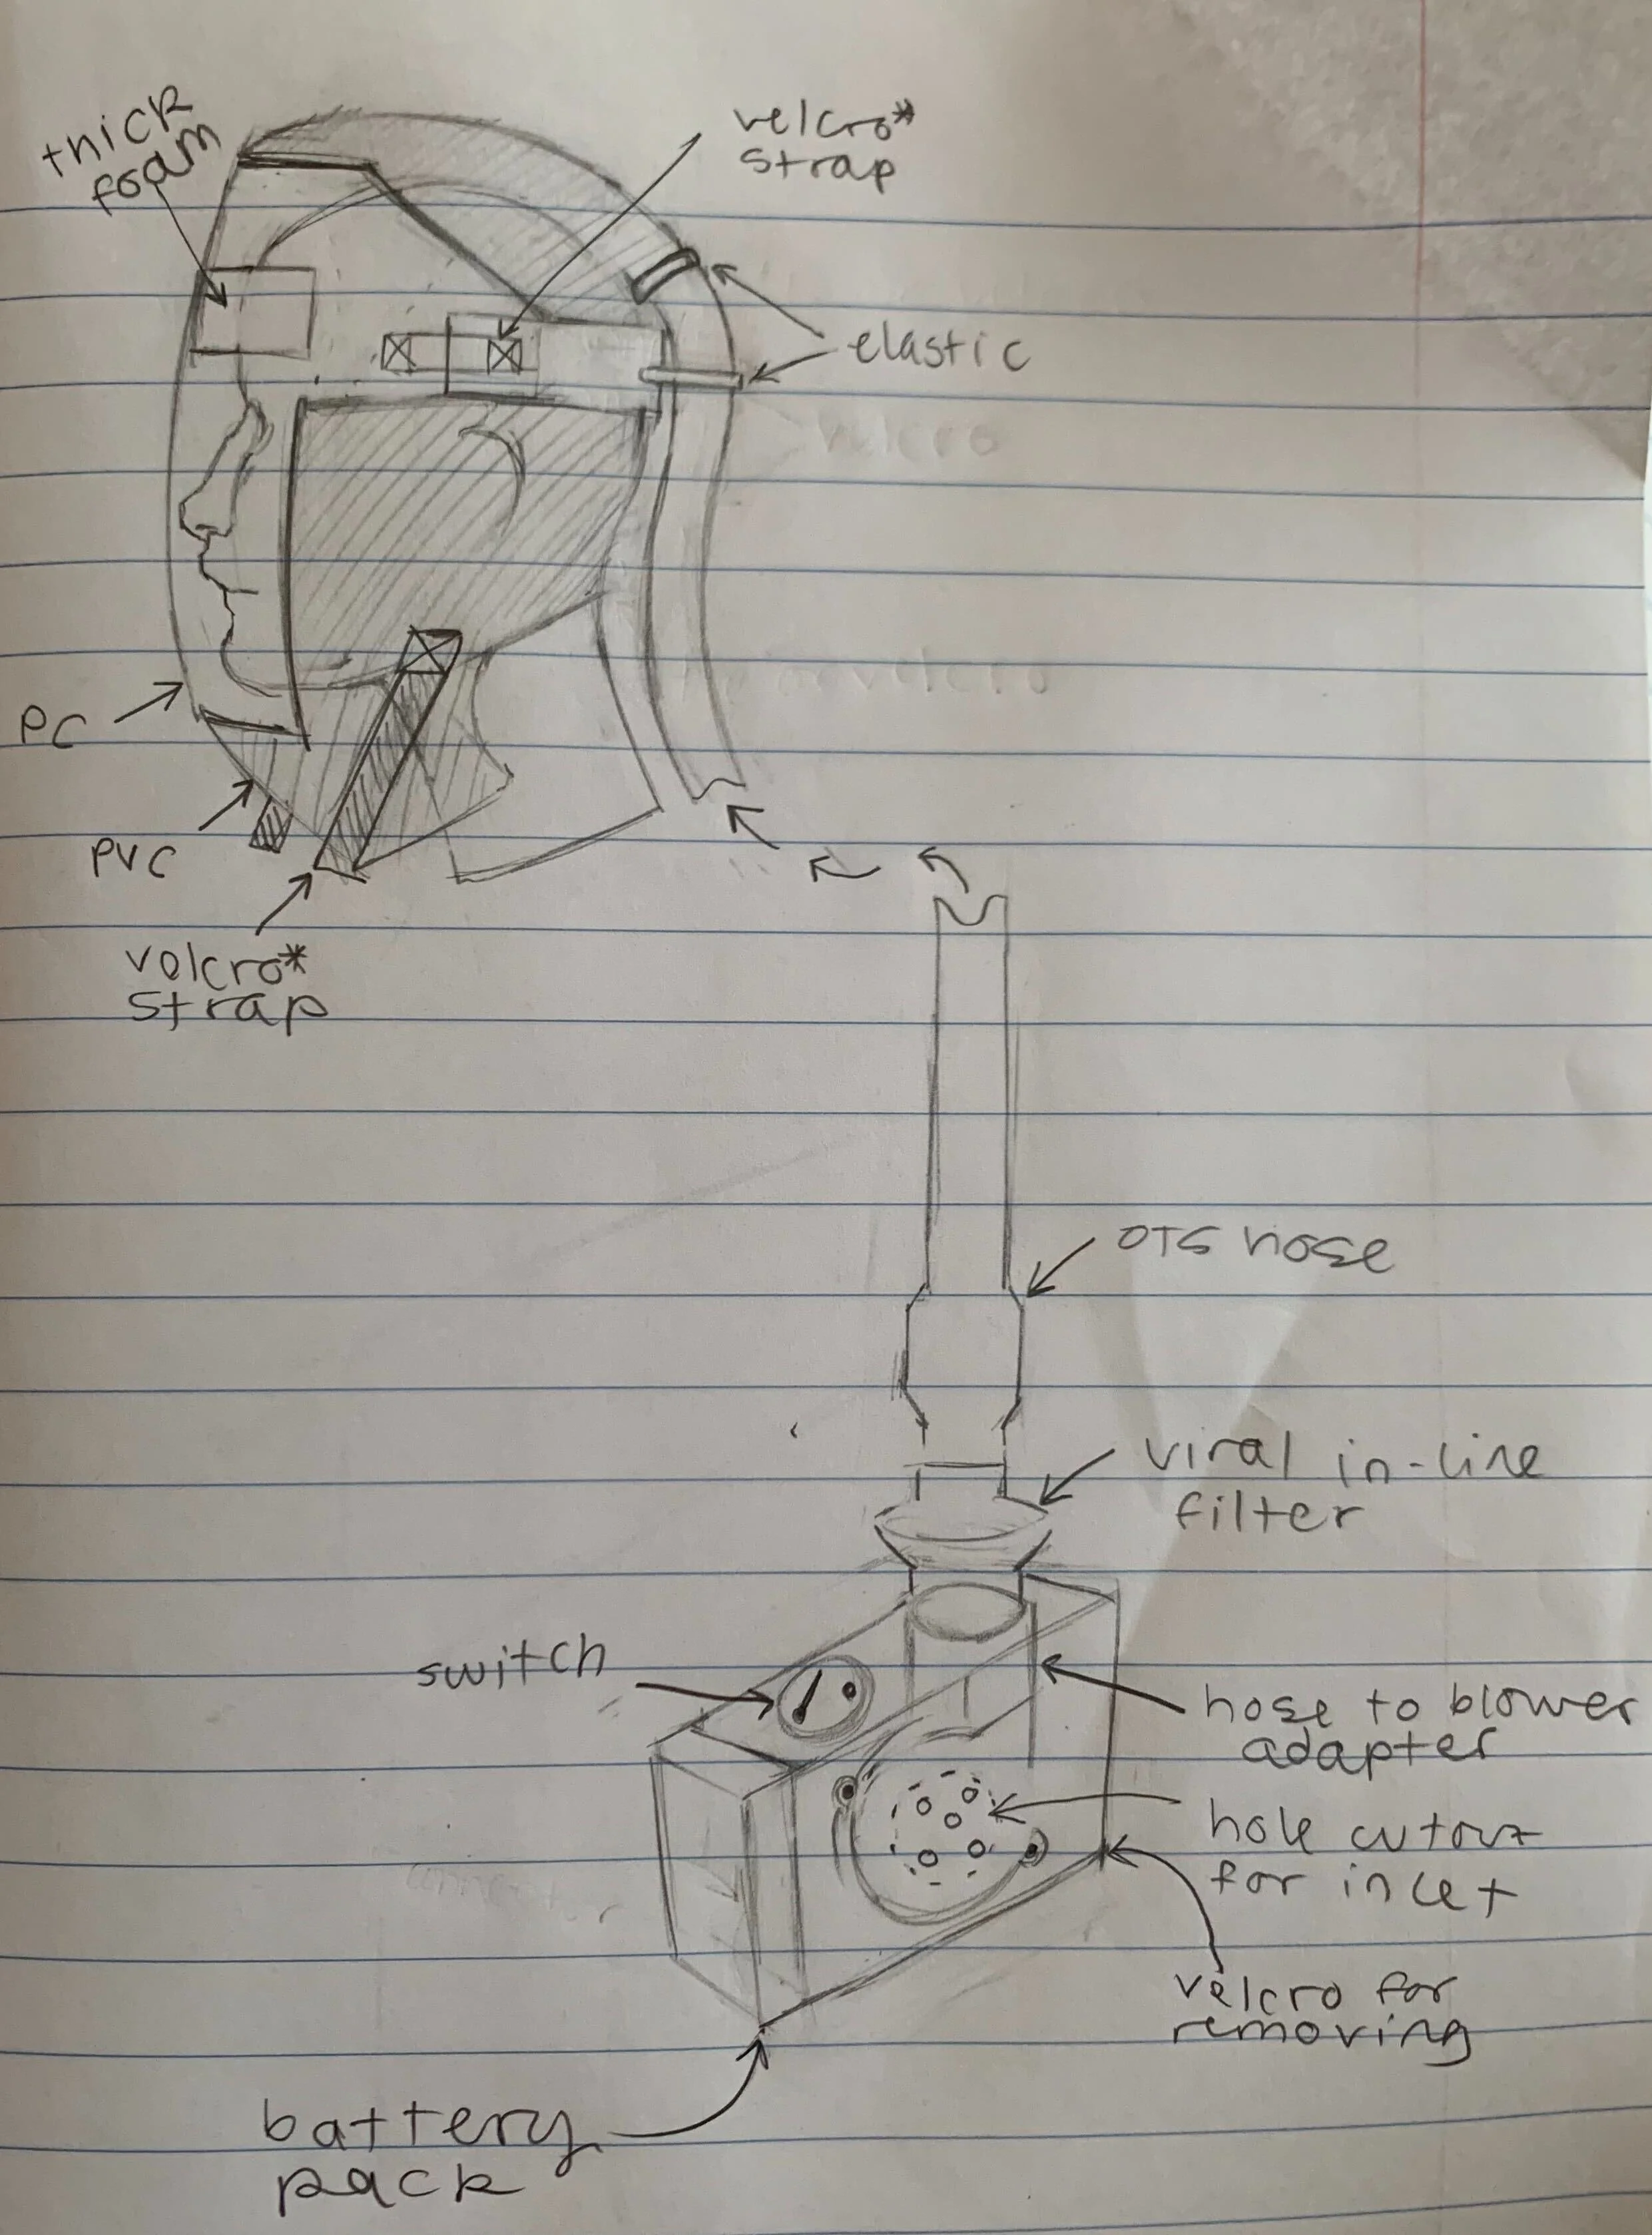 thick
foam
velcro*
strap
elastic
velcro
PC
velcro
PVC
velcro*
strap
OTS hose
viral in-line
filter
switch
hose to blower
adapter
hole cutout
for inlet
velcro for
removing
battery
pack